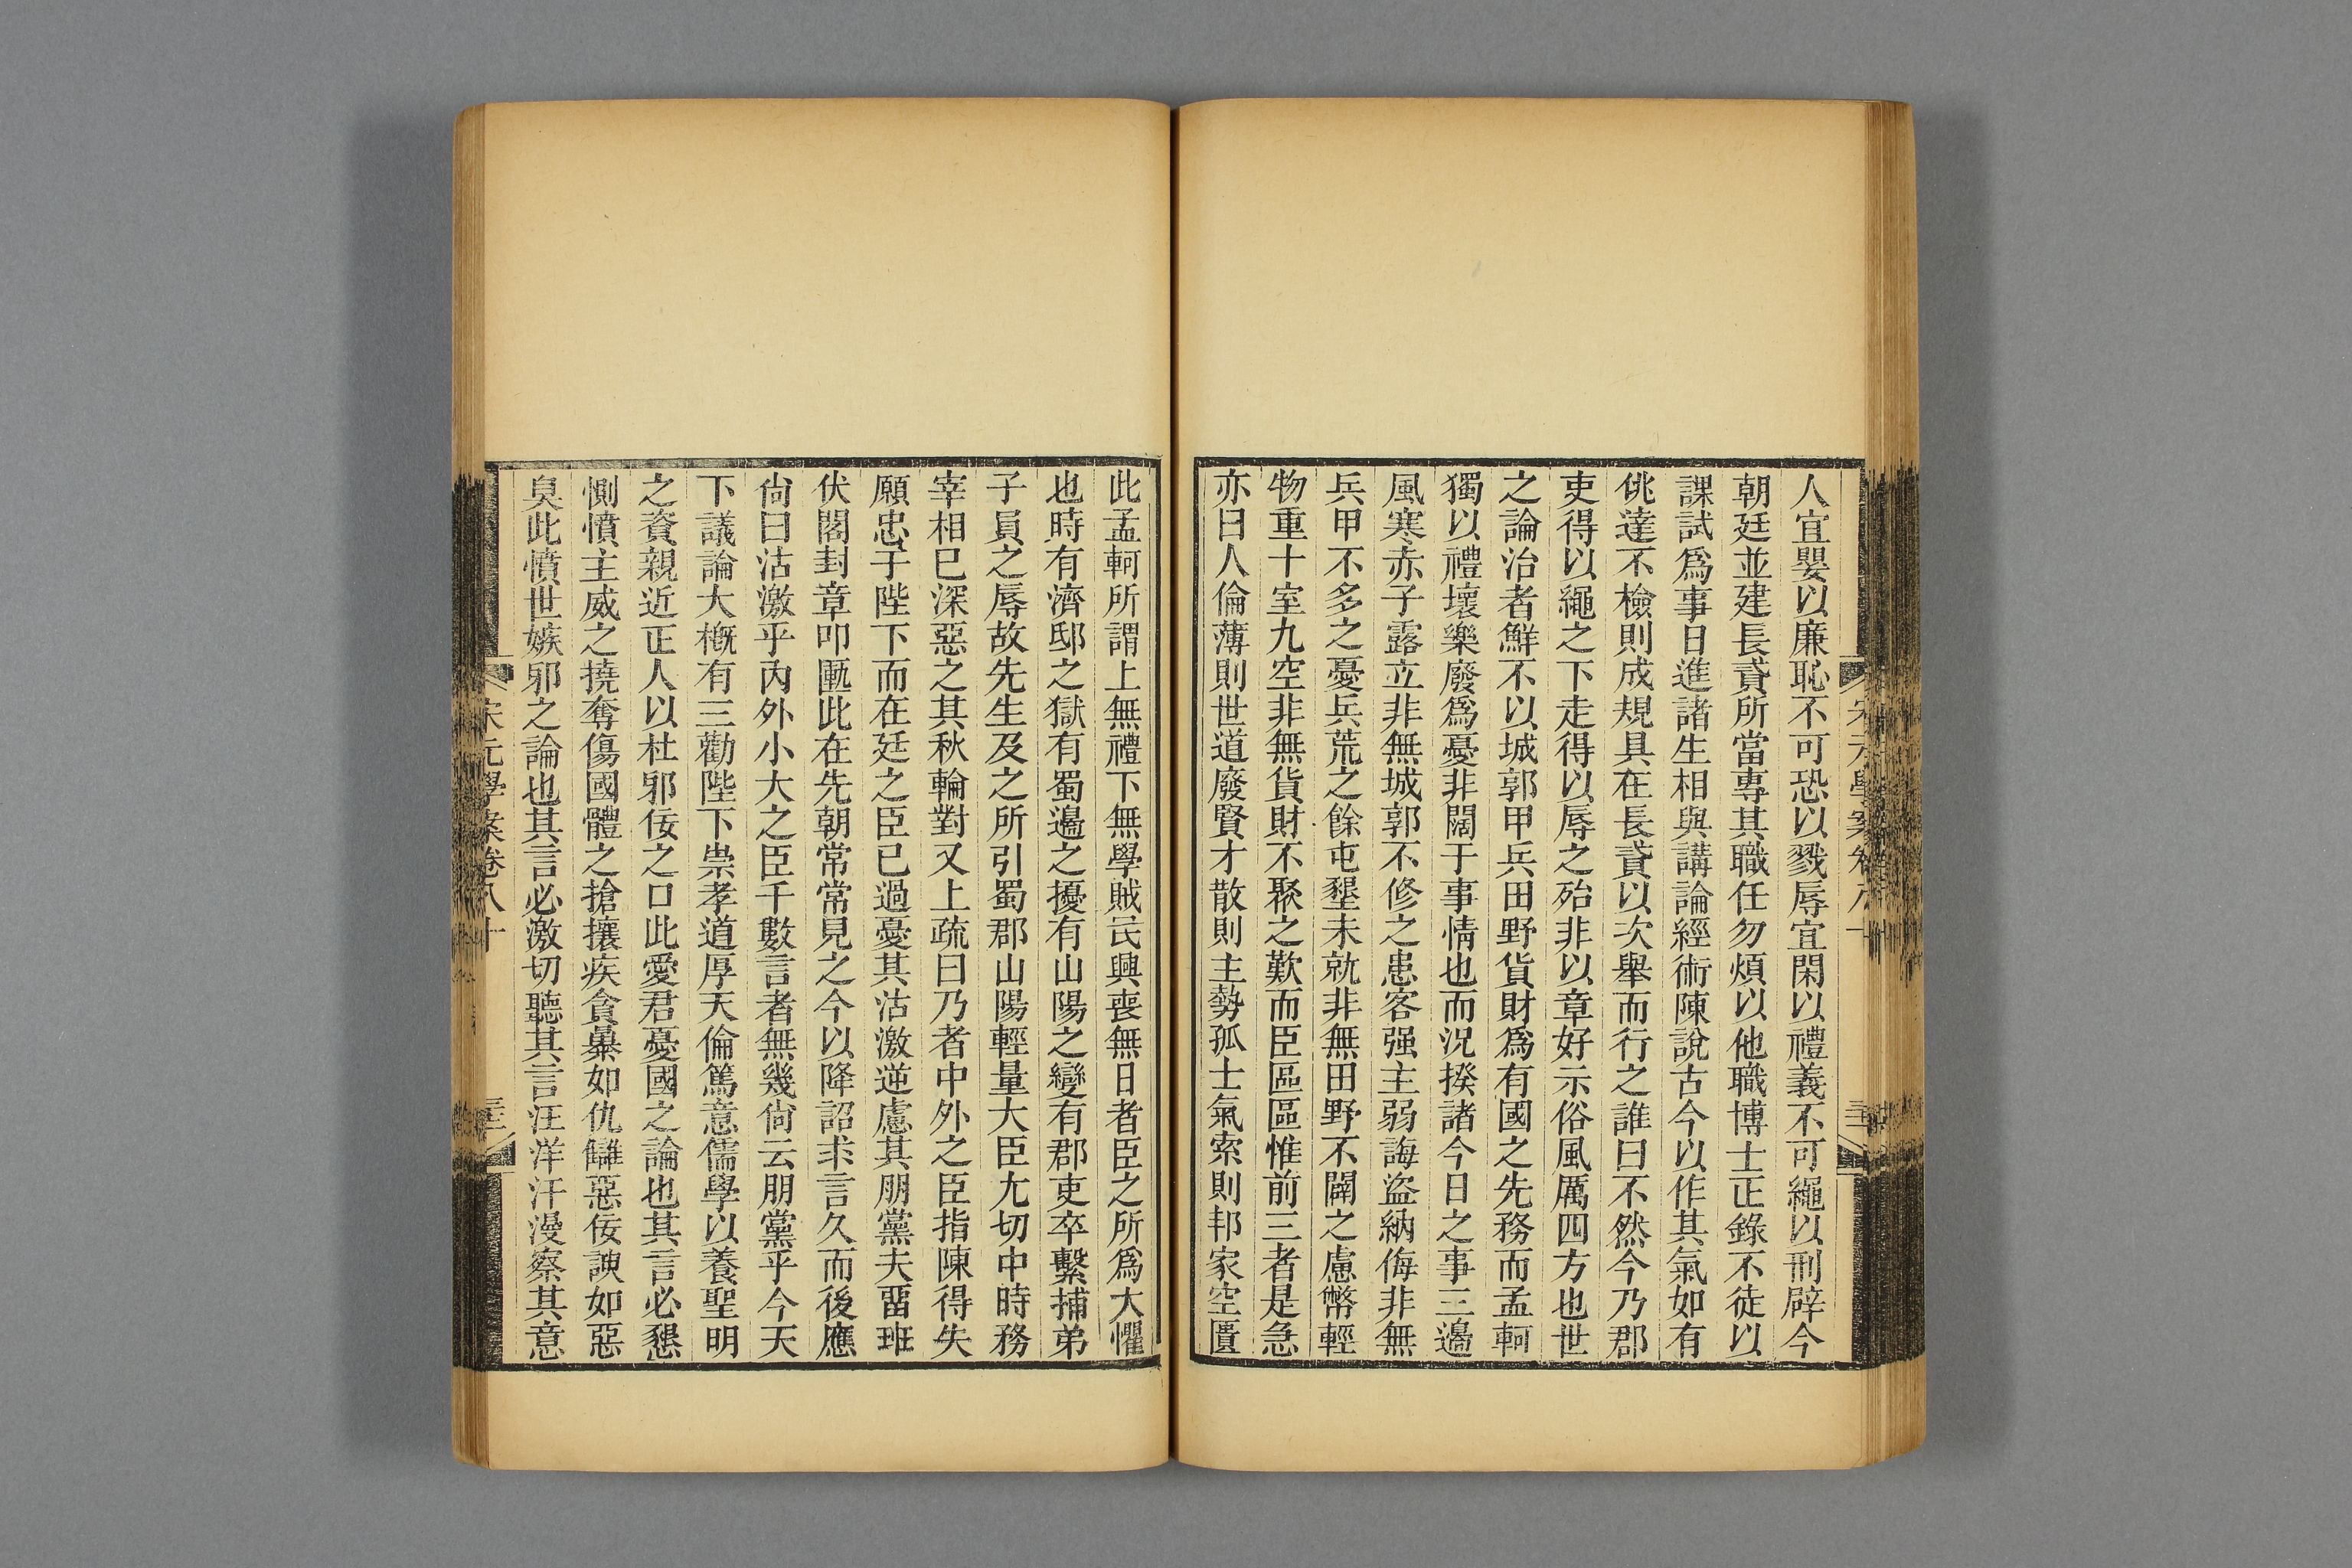 人宜嬰以廉恥不可恐以戮辱宜閑以禮義不可繩以刑辟今
朝廷並建長貳所當專其職任勿煩以他職博士正錄不徒以
課試爲事日進諸生相與講論經術陳說古今以作其氣如有
佻達不檢則成規具在長貳以次舉而行之誰曰不然今乃郡
吏得以繩之下走得以辱之殆非以章好示俗風厲四方也世
之論治者鮮不以城郭甲兵田野貨財爲有國之先務而孟軻
獨以禮壞樂廢爲憂非闊于事情也而況揆諸今日之事三邊
風寒赤子露立非無城郭不修之患客强主弱誨盜納侮非無
兵甲不多之憂兵荒之餘屯墾未就非無田野不闢之慮幣輕
物重十室九空非無貨財不聚之歎而臣區區惟前三者是急
亦曰人倫薄則世道廢賢才散則主勢孤士氣索則邦家空匱
此孟軻所謂上無禮下無學賊民興喪無日者臣之所爲大懼
也時有濟邸之獄有蜀邊之擾有山陽之變有郡吏卒繫捕弟
子員之辱故先生及之所引蜀郡山陽輕量大臣尤切中時務
宰相已深惡之其秋輪對又上疏曰乃者中外之臣指陳得失
願忠于陛下而在廷之臣已過憂其沽激逆慮其朋黨夫畱班
伏閤封章叩匭此在先朝常常見之今以降詔求言久而後應
尙曰沽激乎內外小大之臣千數言者無幾尙云朋黨乎今天
下議論大槪有三勸陛下崇孝道厚天倫篤意儒學以養聖明
之資親近正人以杜邪佞之口此愛君憂國之論也其言必懇
惻憤主威之撓奪傷國體之搶攘疾貪暴如仇讎惡佞諛如惡
臭此憤世嫉邪之論也其言必激切聽其言汪洋汗漫察其意
宋元學案卷八十